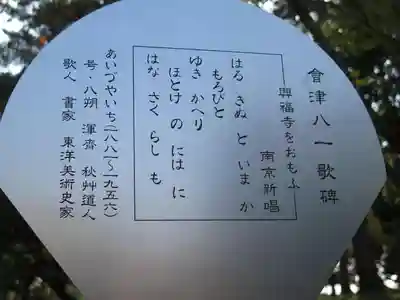 會津八一歌碑
興福寺をおもふ
南京新唱
はる きぬ と いま か
もろびと
ゆき かへり
ほとけ の には に
はな さく らし も
あいづやいち(一八八一～一九五六)
号・八朔 渾齊 秋艸道人
歌人 書家 東洋美術史家